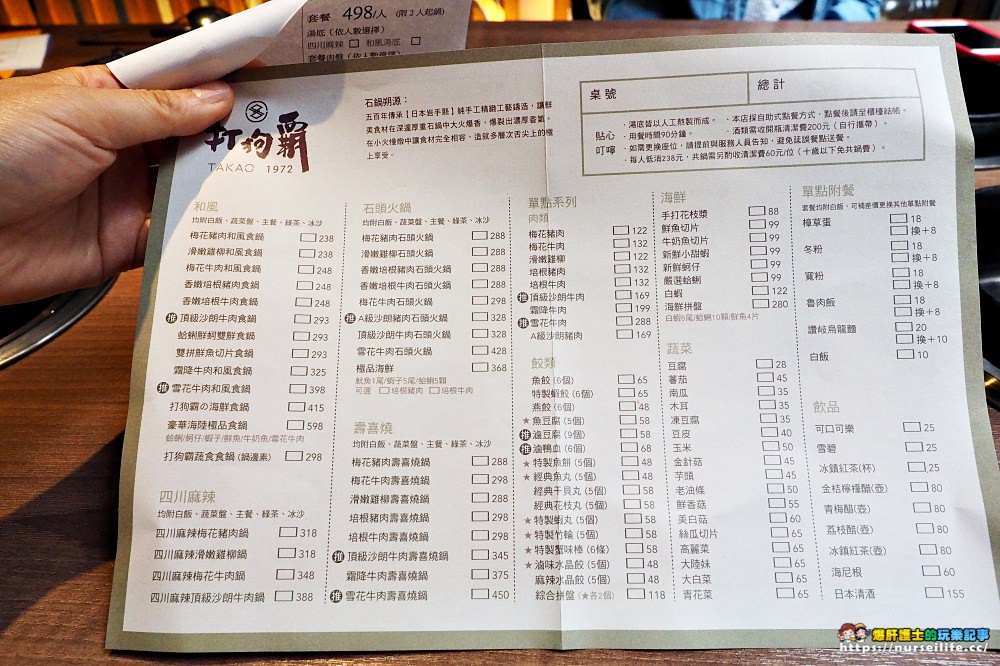 套餐 498/人 (限2人起鍋)
湯底(依人數選擇)
四川麻辣 □ 和風湯底 □
打狗霸
TAKAO 1972
石鍋朔源：
五百年傳承【日本岩手縣】純手工精緻工藝鑄造，讓鮮
美食材在深邃厚重石鍋中大火爆香，爆裂出濃厚香氣。
在小火慢燉中讓食材完全相容、造就多層次舌尖上的極
上享受。
桌號
總計
貼心
叮嚀
·湯底皆以人工熬製而成。
·本店採自助式點餐方式，點餐後請至櫃檯結帳。
·用餐時間90分鐘。
·酒類需收開瓶清潔費200元（自行攜帶）。
·如需更換座位，請提前與服務人員告知，避免延誤餐點送餐。
·每人低消238元，共鍋需另酌收清潔費60元/位（十歲以下免共鍋費）。
和風
均附白飯、蔬菜盤、主餐、綠茶、冰沙
梅花豬肉和風食鍋 □ 238
滑嫩雞柳和風食鍋 □ 238
梅花牛肉和風食鍋 □ 248
香嫩培根豬肉食鍋 □ 248
香嫩培根牛肉食鍋 □ 248
推 頂級沙朗牛肉食鍋 □ 293
蛤蜊鮮蚵雙鮮食鍋 □ 293
雙拼鮮魚切片食鍋 □ 293
霜降牛肉和風食鍋 □ 325
推 雪花牛肉和風食鍋 □ 398
打狗霸の海鮮食鍋 □ 415
豪華海陸極品食鍋 □ 598
蛤蜊/蚵仔/蝦子/鮮魚/牛奶魚/雪花牛肉
打狗霸蔬食食鍋 (鍋邊素) □ 298
四川麻辣
均附白飯、蔬菜盤、主餐、綠茶、冰沙
四川麻辣梅花豬肉鍋 □ 318
四川麻辣滑嫩雞柳鍋 □ 318
四川麻辣梅花牛肉鍋 □ 348
四川麻辣頂級沙朗牛肉鍋 □ 388
石頭火鍋
均附白飯、蔬菜盤、主餐、綠茶、冰沙
梅花豬肉石頭火鍋 □ 288
滑嫩雞柳石頭火鍋 □ 288
香嫩培根豬肉石頭火鍋 □ 288
香嫩培根牛肉石頭火鍋 □ 288
梅花牛肉石頭火鍋 □ 298
推 A級沙朗豬肉石頭火鍋 □ 328
頂級沙朗牛肉石頭火鍋 □ 328
雪花牛肉石頭火鍋 □ 428
極品海鮮 □ 368
魷魚1尾/蝦子5尾/蛤蜊5顆
可選 □培根豬肉 □培根牛肉
壽喜燒
均附白飯、蔬菜盤、主餐、綠茶、冰沙
梅花豬肉壽喜燒鍋 □ 288
梅花牛肉壽喜燒鍋 □ 298
滑嫩雞柳壽喜燒鍋 □ 288
培根豬肉壽喜燒鍋 □ 298
培根牛肉壽喜燒鍋 □ 298
推 頂級沙朗牛肉壽喜燒鍋 □ 345
霜降牛肉壽喜燒鍋 □ 375
推 雪花牛肉壽喜燒鍋 □ 450
單點系列
肉類
梅花豬肉 □ 122
梅花牛肉 □ 132
滑嫩雞柳 □ 122
培根豬肉 □ 132
培根牛肉 □ 132
推 頂級沙朗牛肉 □ 169
霜降牛肉 □ 199
推 雪花牛肉 □ 288
A級沙朗豬肉 □ 169
餃類
魚餃 (6個) □ 65
特製蝦餃 (6個) □ 65
燕餃 (6個) □ 48
★ 魚豆腐 (5個) □ 58
推 滷豆腐 (9個) □ 58
推 滷鴨血 (6個) □ 68
★ 特製魚餅 (5個) □ 48
★ 經典魚丸 (5個) □ 48
經典干貝丸 (5個) □ 58
經典花枝丸 (5個) □ 58
★ 特製蝦丸 (5個) □ 58
★ 特製竹輪 (5個) □ 58
★ 特製蟹味棒 (6條) □ 58
★ 滷味水晶餃 (5個) □ 48
麻辣水晶餃 (5個) □ 48
綜合拼盤 (★各2個) □ 118
海鮮
手打花枝漿 □ 88
鮮魚切片 □ 99
牛奶魚切片 □ 99
新鮮小甜蝦 □ 99
新鮮蚵仔 □ 99
嚴選蛤蜊 □ 99
白蝦 □ 122
海鮮拼盤 □ 280
白蝦6尾/蛤蜊10顆/鮮魚4片
蔬菜
豆腐 □ 28
蕃茄 □ 45
南瓜 □ 35
木耳 □ 35
凍豆腐 □ 35
豆皮 □ 40
玉米 □ 50
金針菇 □ 45
芋頭 □ 45
老油條 □ 50
鮮香菇 □ 55
美白菇 □ 60
絲瓜切片 □ 65
高麗菜 □ 65
大陸妹 □ 65
大白菜 □ 65
青花菜 □ 65
單點附餐
套餐均附白飯，可補差價更換其他單點附餐
樟草蛋 □ 18
□ 換+8
冬粉 □ 18
□ 換+8
寬粉 □ 18
□ 換+8
魯肉飯 □ 18
□ 換+8
讚岐烏龍麵 □ 20
□ 換+10
白飯 □ 10
飲品
可口可樂 □ 25
雪碧 □ 25
冰鎮紅茶(杯) □ 25
金桔檸檬醋(壺) □ 80
青梅醋(壺) □ 80
荔枝醋(壺) □ 80
冰鎮紅茶(壺) □ 80
海尼根 □ 60
日本清酒 □ 155
爆肝護士的玩樂記事
https://nurseilife.cc/